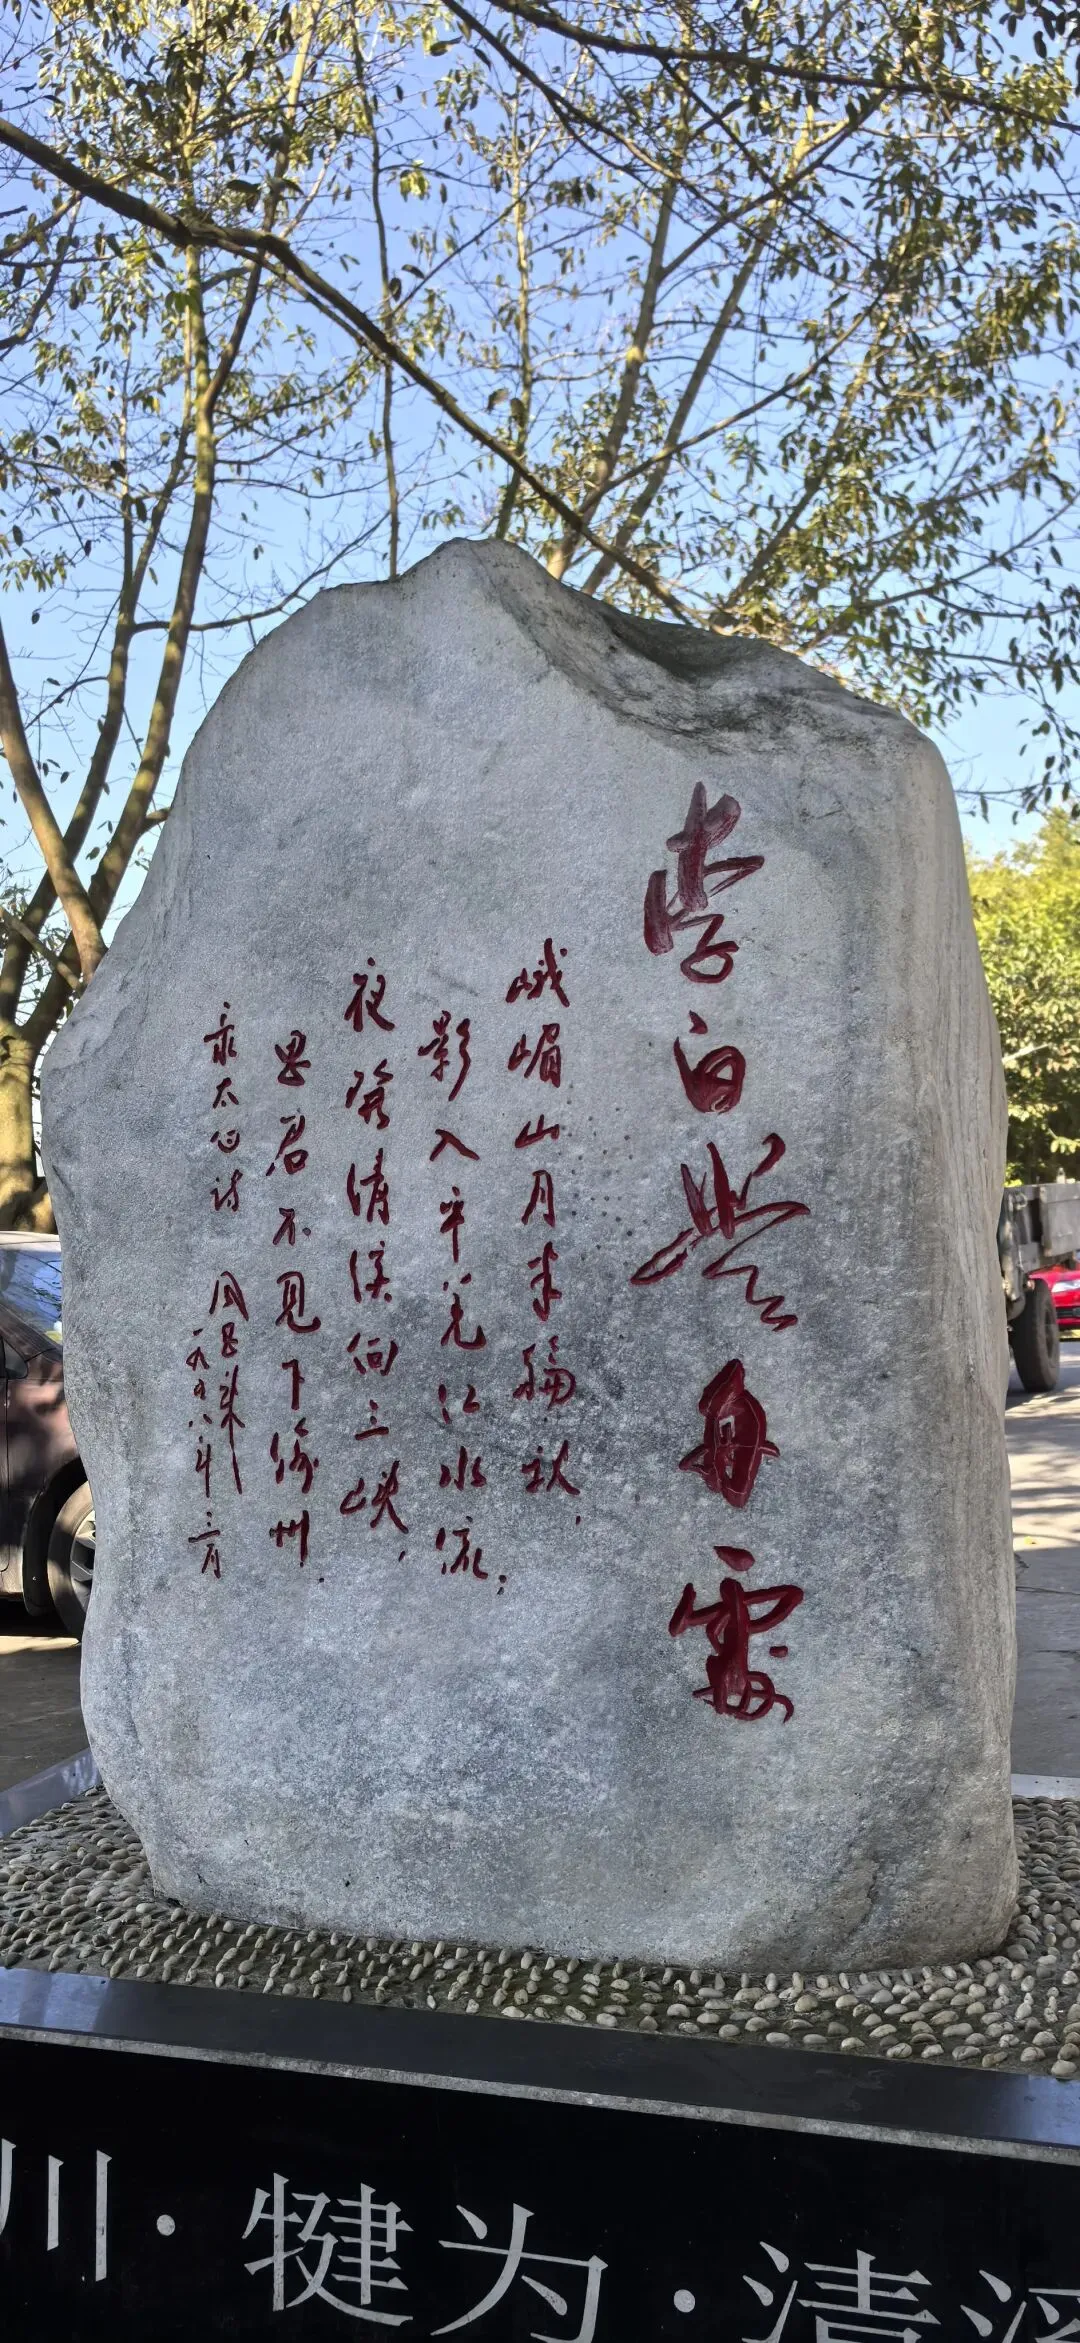 李白登舟處
峨嵋山月半輪秋，
影入平羌江水流；
夜發清溪向三峡，
思君不見下渝州．
录太白诗
一九九八年三月
川·犍为·清溪